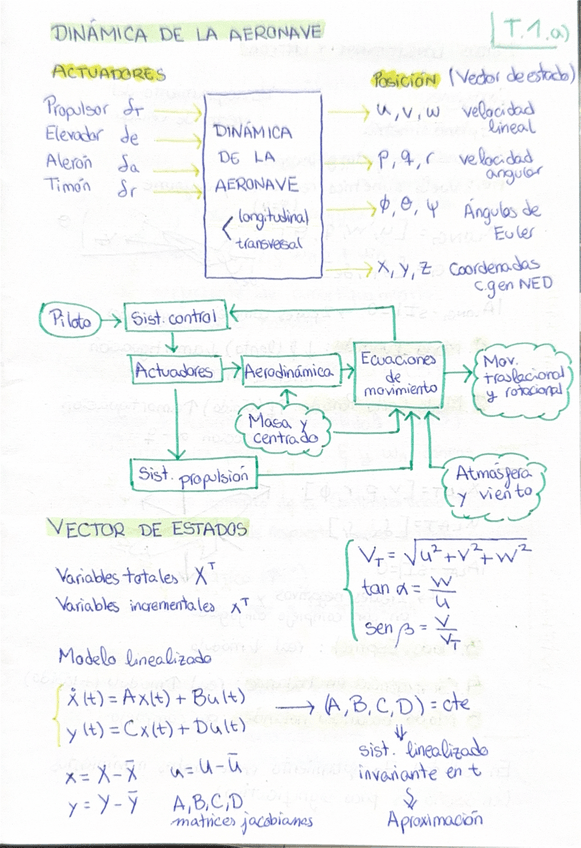 DINÁMICA DE LA AERONAVE
T.1.a)
ACTUADORES
POSICIÓN (Vector de estado)
Propulsor δT
Elevador δe
Alerón δa
Timón δr
DINÁMICA
DE LA
AERONAVE
longitudinal
transversal
u, v, w velocidad
lineal
p, q, r velocidad
angular
ϕ, θ, ψ Ángulos de
Euler
x, y, z Coordenadas
c.g en NED
Piloto
Sist. control
Actuadores
Aerodinámica
Ecuaciones
de
movimiento
Mov.
traslacional
y rotacional
Masa y
centrado
Sist. propulsión
Atmósfera
y viento
VECTOR DE ESTADOS
Variables totales X^T
Variables incrementales x^T
V_T = √(u² + v² + w²)
tan α = w/u
sen β = v/V_T
Modelo linealizado
ẋ(t) = Ax(t) + Bu(t) → (A, B, C, D) = cte
y(t) = Cx(t) + Du(t)
sist. linealizado
invariante en t
x = X - X̄ u = U - Ū
y = Y - Ȳ A, B, C, D
matrices jacobianas
Aproximación